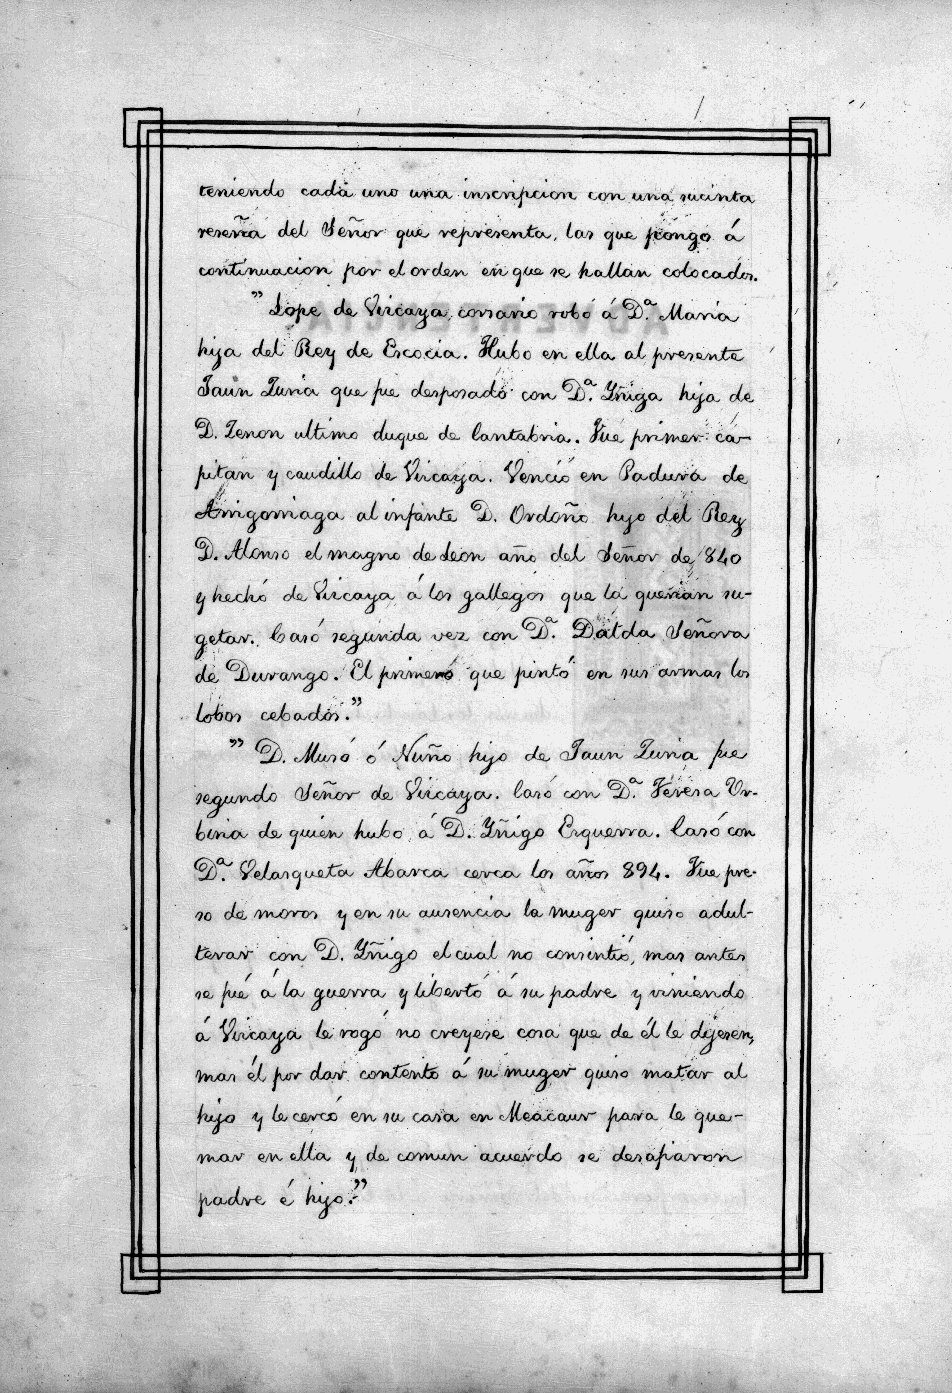 teniendo cada uno una inscripcion con una sucinta
reseña del Señor que representa, las que pongo á
continuacion por el orden en que se hallan colocados.
” Lope de Vizcaya, corsario robó á D.ª Maria
hija del Rey de Escocia. Hubo en ella al presente
Jaun Zuria que fue desposado con D.ª Yñiga hija de
D. Zenon ultimo duque de Cantabria. Fue primer ca-
pitan y caudillo de Vizcaya. Venció en Padura de
Arrigorriaga al infante D. Ordoño hijo del Rey
D. Alonso el magno de Leon año del Señor de 840
y hechó de Vizcaya á los gallegos que la querian su-
getar. Casó segunda vez con D.ª Dalda Señora
de Durango. El primero que pintó en sus armas los
lobos cebados.”
” D. Musó ó Nuño hijo de Jaun Zuria fue
segundo Señor de Vizcaya. Casó con D.ª Teresa Ur-
bina de quien hubo á D. Yñigo Ezquerra. Casó con
D.ª Velasqueta Abarca cerca los años 894. Fue pre-
so de moros y en su ausencia la muger quiso adul-
terar con D. Yñigo el cual no consintió, mas antes
se fué á la guerra y libertó á su padre y viniendo
á Vizcaya le rogó no creyese cosa que de él le dijesen,
mas él por dar contento á su muger quiso matar al
hijo y le cercó en su casa en Meacaur para le que-
mar en ella y de comun acuerdo se desafiaron
padre é hijo.”